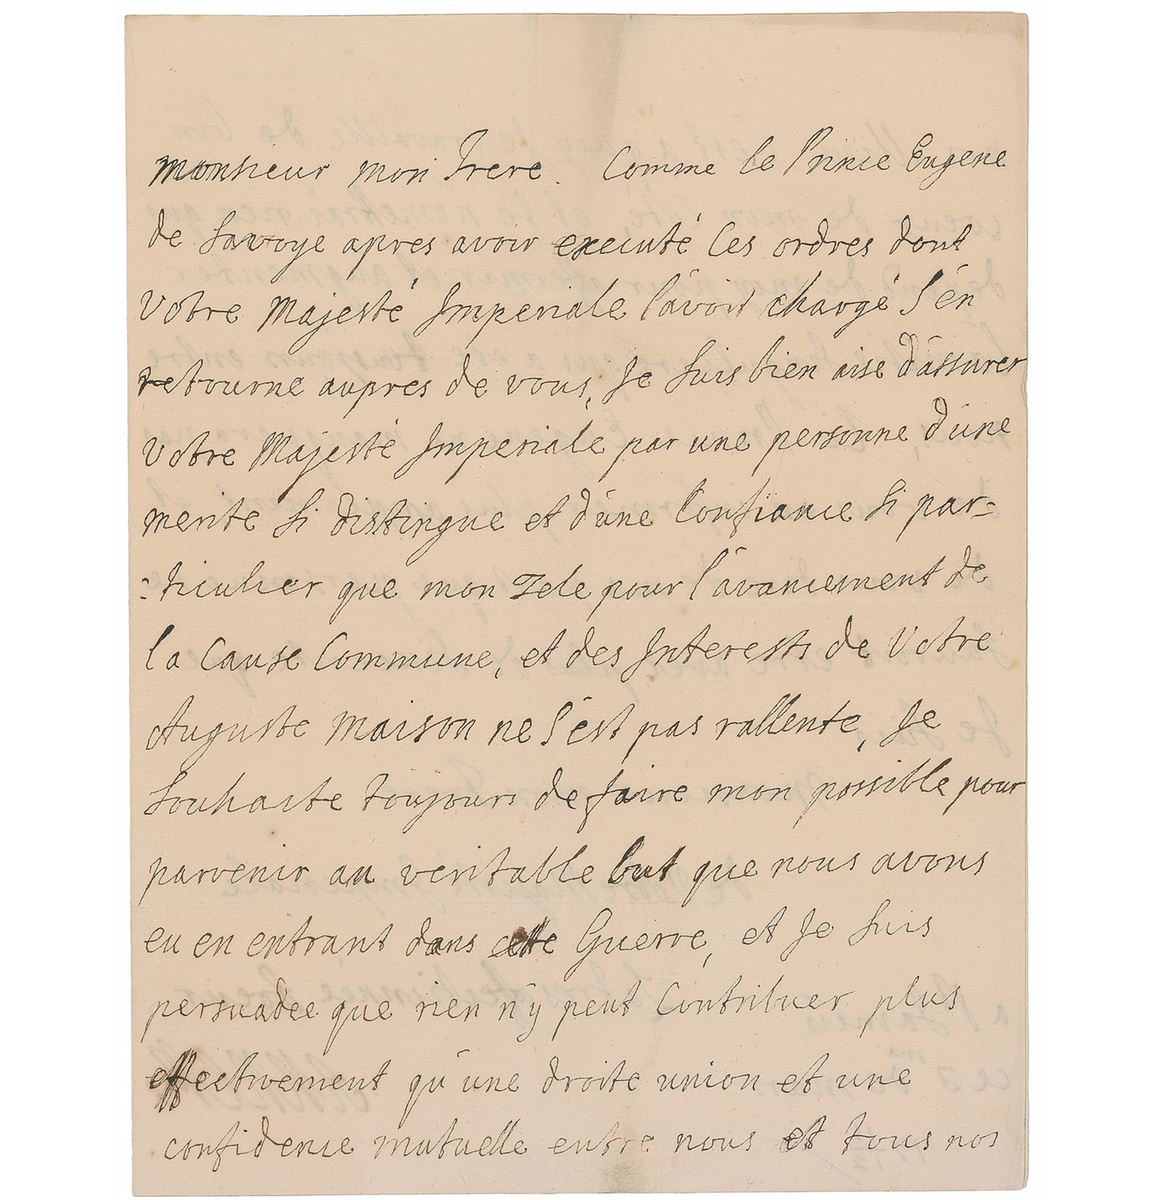 Monsieur mon Frere. Comme le Prince Eugene
de Savoye apres avoir executé les ordres dont
Votre Majesté Imperiale l'avoit chargé s'en
retourne aupres de vous, Je suis bien aise d'assurer
Votre Majesté Imperiale par une personne d'une
merite si distingue et d'une Confiance si par=
:ticulier que mon Zele pour l'avancement de
la Cause Commune, et des Interests de Votre
Auguste Maison ne s'est pas rallente, Je
souhaite toujours de faire mon possible pour
parvenir au veritable but que nous avons
eu en entrant dans cette Guerre, et Je suis
persuadee que rien n'y peut Contribuer plus
effectivement qu'une droite union et une
confidence mutuelle entre nous et tous nos